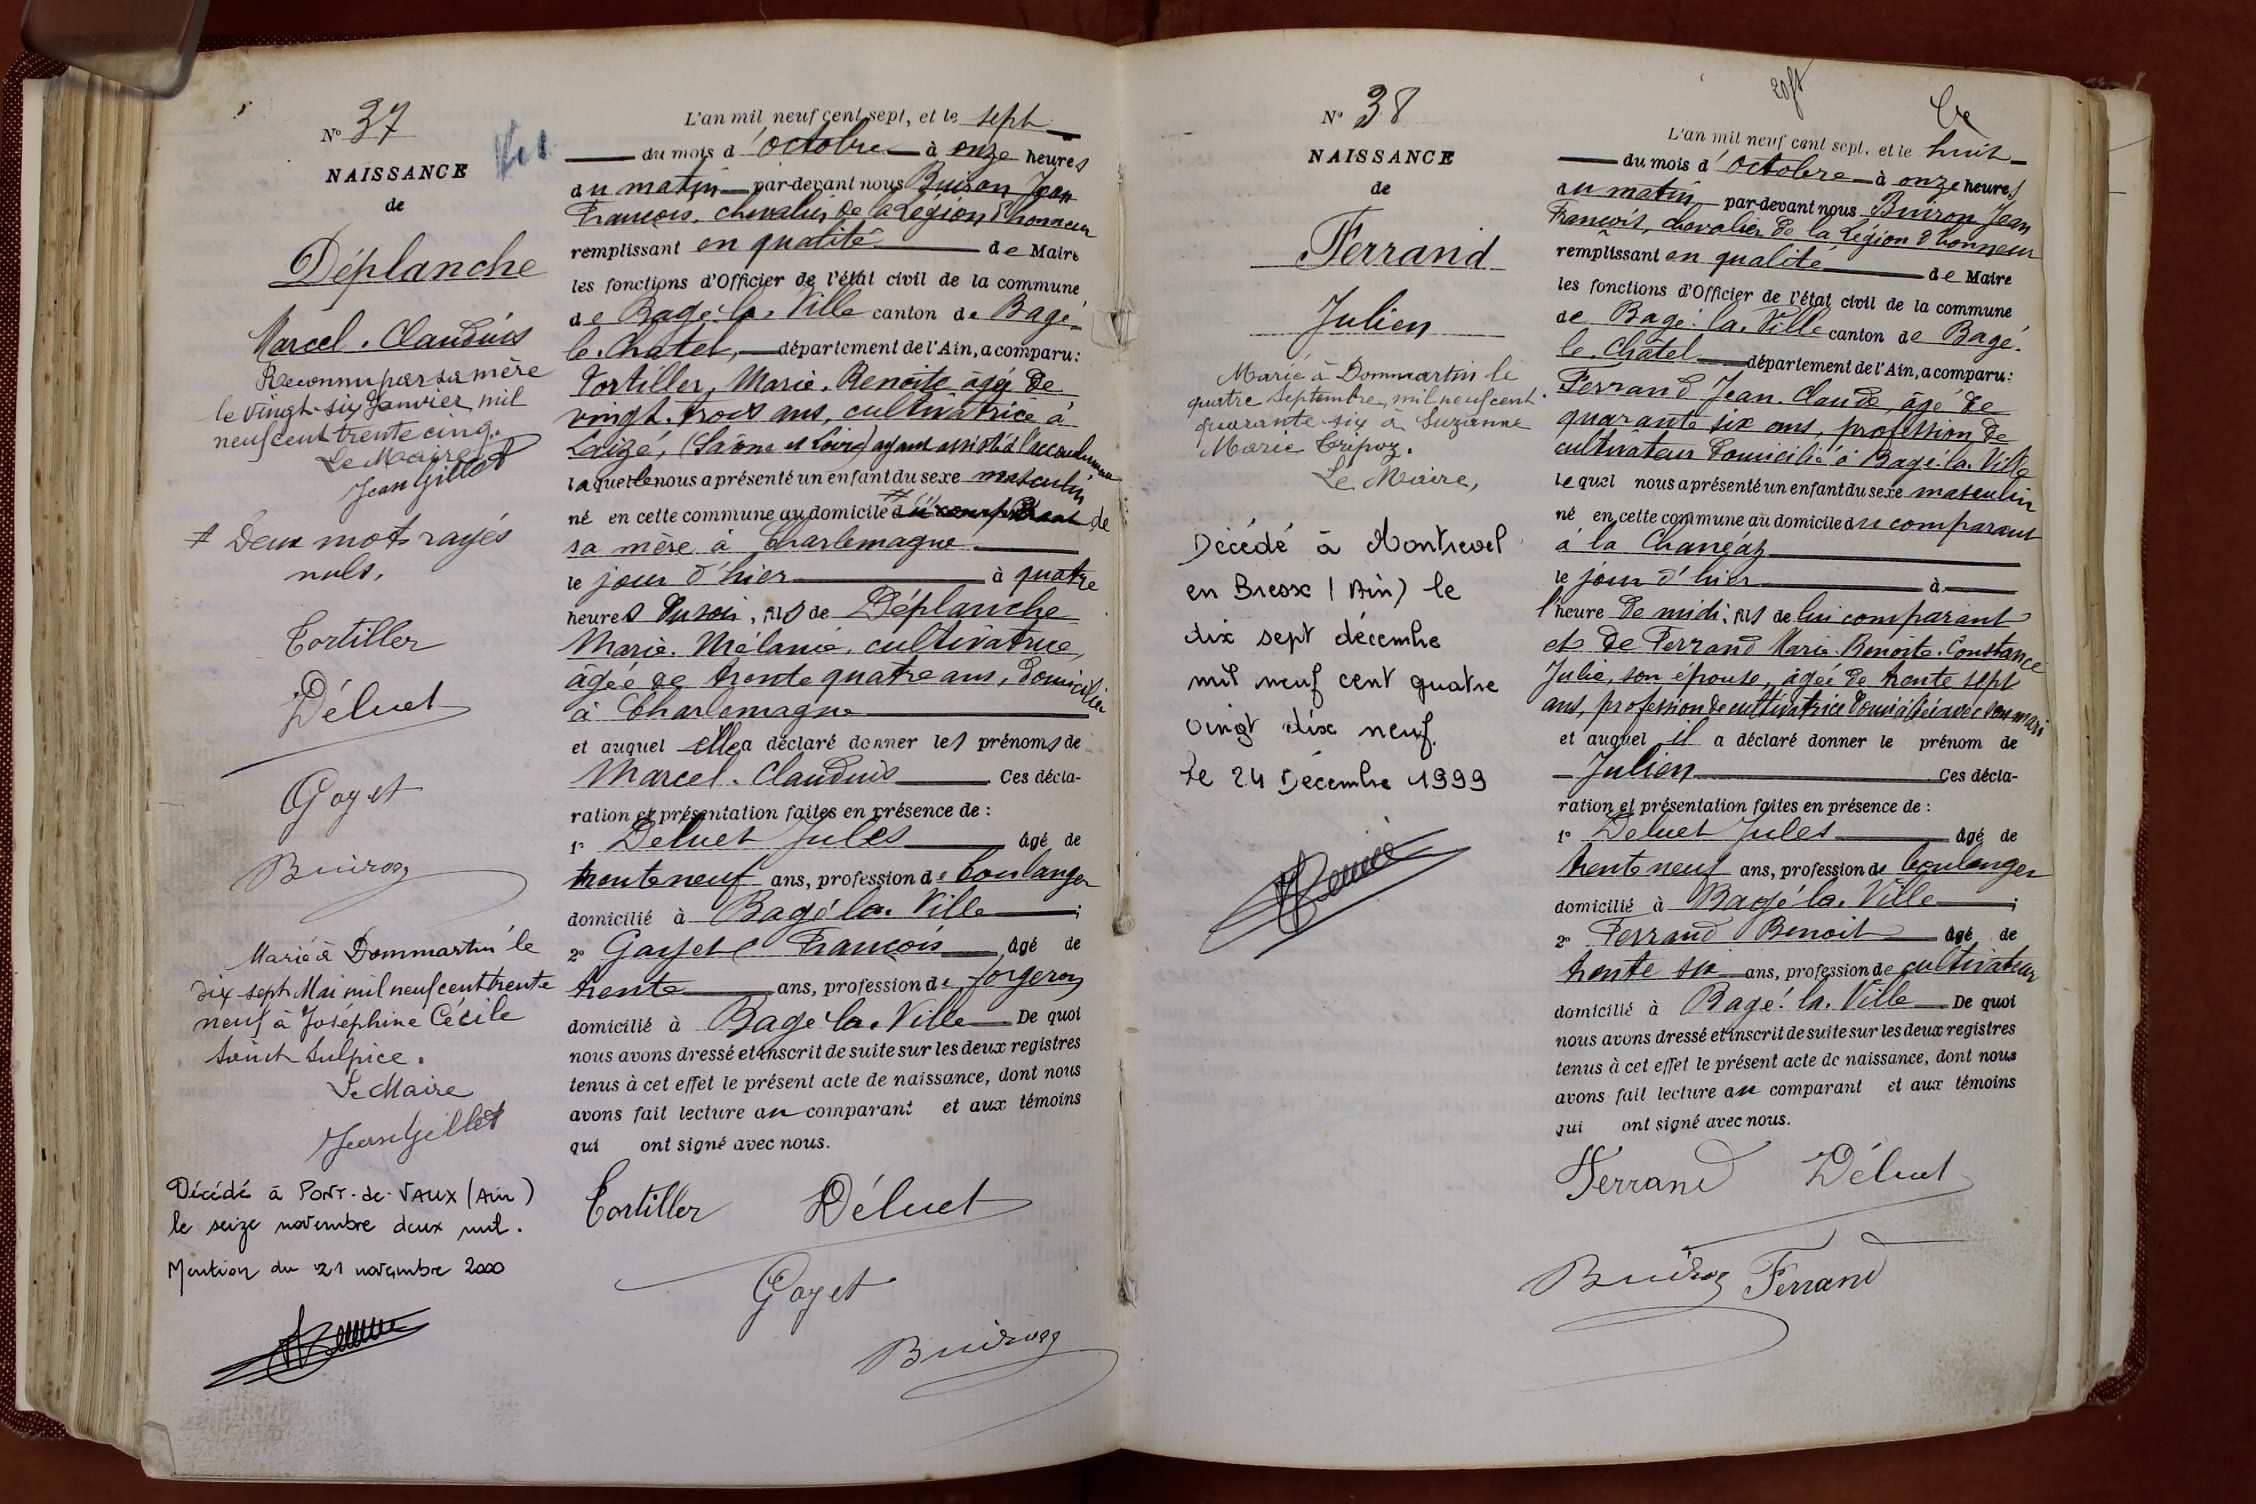 N° 37
NAISSANCE
de
Déplanche
Marcel. Claudius
Reconnu par sa mère
le vingt-six Janvier mil
neuf cent trente cinq.
Le Maire
Jean Gillet
# Deux mots rayés
nuls.
Tortiller
Déluet
Goyet
Buiron
Marié à Dommartin le
dix sept Mai mil neuf cent trente
neuf à Joséphine Cécile
Saint Sulpice.
Le Maire
Jean Gillet
Décédé à PONT-de-VAUX (Ain)
le seize novembre deux mil.
Mention du 21 novembre 2000
L'an mil neuf cent sept, et le sept
du mois d'octobre à onze heures
du matin par-devant nous Buiron Jean
François, chevalier de la Légion d'honneur
remplissant en qualité de Maire
les fonctions d'Officier de l'état civil de la commune
de Bagé-la-Ville canton de Bagé-
le-Châtel, département de l'Ain, a comparu:
Tortiller, Marie-Benoîte âgée de
vingt-trois ans, cultivatrice à
Laizé, (Saône et Loire) ayant assisté à l'accouchement
laquelle nous a présenté un enfant du sexe masculin
né en cette commune au domicile # du comparant de
sa mère à Charlemagne
le jour d'hier à quatre
heures du soir, fils de Déplanche
Marie-Mélanie, cultivatrice,
âgée de trente quatre ans, domiciliée
à Charlemagne
et auquel elle a déclaré donner les prénoms de
Marcel-Claudius Ces décla-
ration et présentation faites en présence de :
1° Deluet Jules âgé de
trente neuf ans, profession de boulanger
domicilié à Bagé-la-Ville ;
2° Goyet François âgé de
trente ans, profession de forgeron
domicilié à Bagé-la-Ville De quoi
nous avons dressé et inscrit de suite sur les deux registres
tenus à cet effet le présent acte de naissance, dont nous
avons fait lecture au comparant et aux témoins
qui ont signé avec nous.
Tortiller Déluet
Goyet
Buiron
N° 38
NAISSANCE
de
Ferrand
Julien
Marié à Dommartin le
quatre Septembre mil neuf cent
quarante-six à Suzanne
Marie Tripoz.
Le Maire,
Décédé à Montrevel
en Bresse (Ain) le
dix sept décembre
mil neuf cent quatre
vingt dix neuf.
Le 24 Décembre 1999
L'an mil neuf cent sept, et le huit
du mois d'octobre à onze heures
du matin par-devant nous Buiron Jean
François, chevalier de la Légion d'honneur
remplissant en qualité de Maire
les fonctions d'Officier de l'état civil de la commune
de Bagé-la-Ville canton de Bagé-
le-Châtel département de l'Ain, a comparu:
Ferrand Jean-Claude, âgé de
quarante six ans, profession de
cultivateur domicilié à Bagé-la-Ville
lequel nous a présenté un enfant du sexe masculin
né en cette commune au domicile du comparant
à la Changéaz
le jour d'hier à
l'heure de midi, fils de lui comparant
et de Ferrand Marie-Benoite-Constance
Julie, son épouse, âgée de trente sept
ans, profession de cultivatrice domiciliée avec son mari
et auquel il a déclaré donner le prénom de
Julien Ces décla-
ration et présentation faites en présence de :
1° Deluet Jules âgé de
trente neuf ans, profession de boulanger
domicilié à Bagé-la-Ville ;
2° Ferrand Benoit âgé de
trente six ans, profession de cultivateur
domicilié à Bagé-la-Ville De quoi
nous avons dressé et inscrit de suite sur les deux registres
tenus à cet effet le présent acte de naissance, dont nous
avons fait lecture au comparant et aux témoins
qui ont signé avec nous.
Ferrand Déluet
Buiron Ferrand